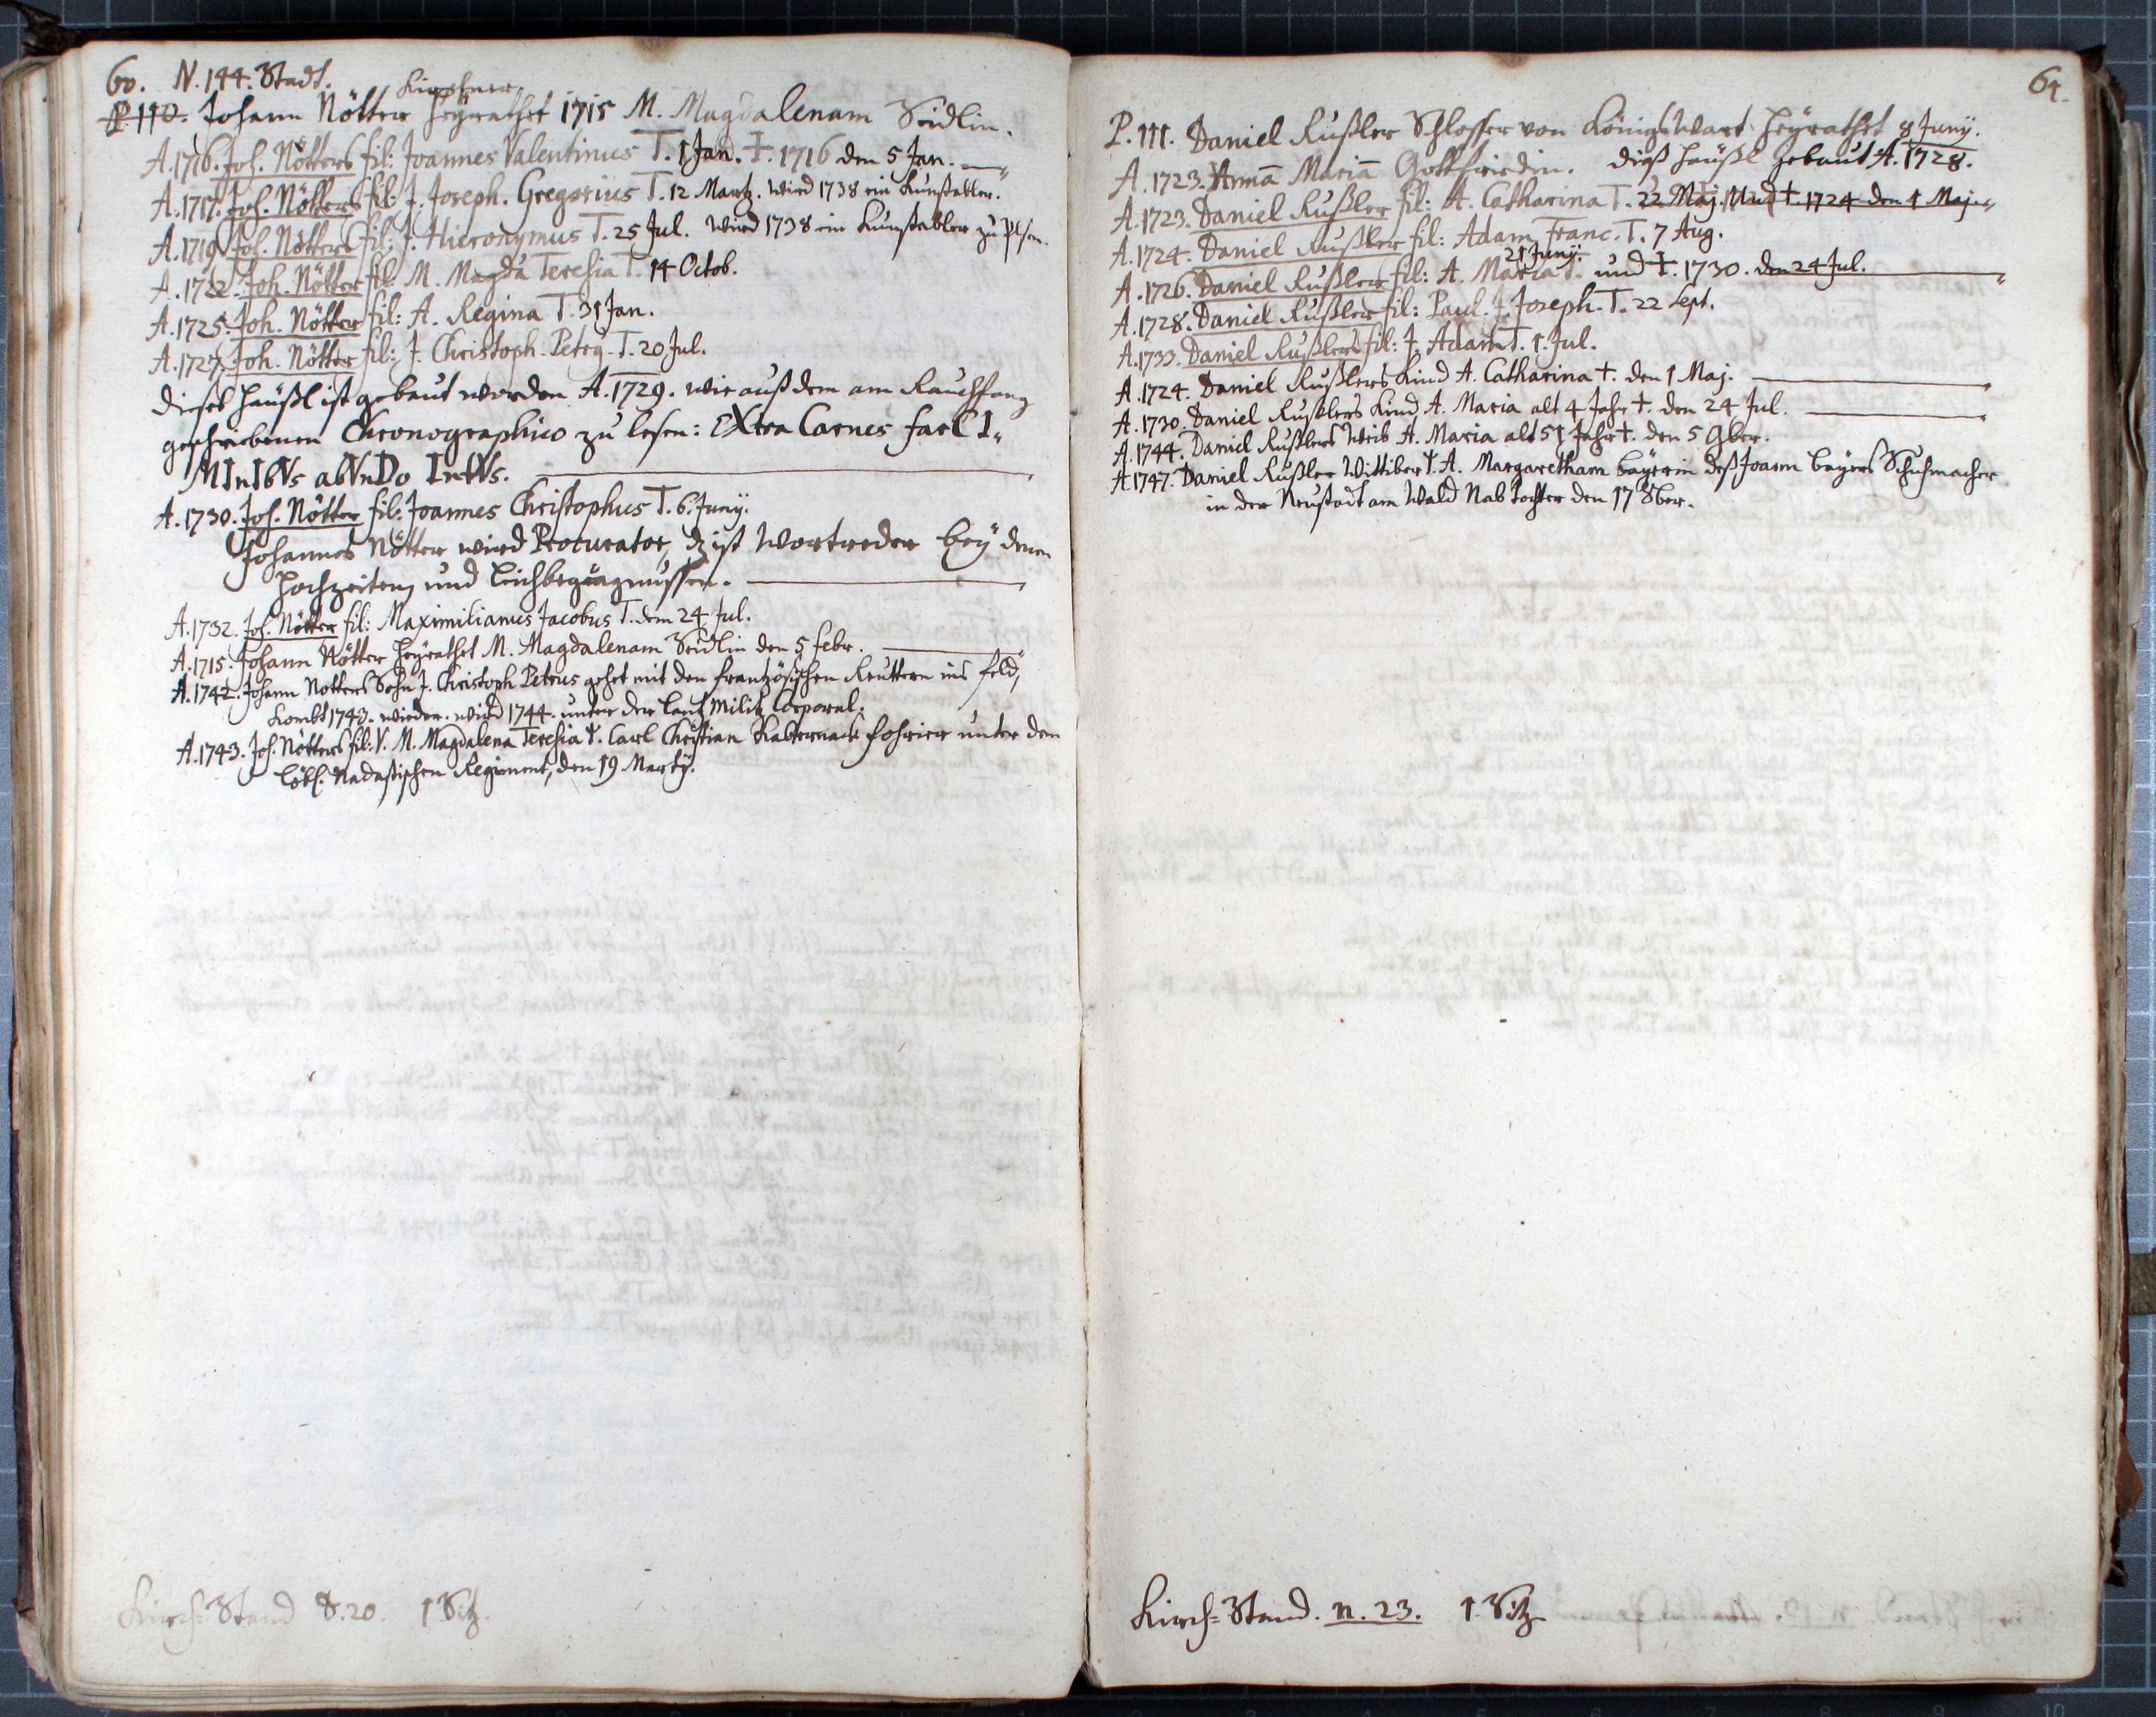 60. N. 144. Stadt.
Kirschner
P. 110. Johann Nötter heyrathet 1715 M. Magdalenam Seidlin.
A. 1716. Joh. Nötters fil: Joannes Valentinus T. 1 Jan. †. 1716 den 5 Jan.
A. 1717. Joh. Nötters fil: J. Joseph. Gregorius T. 12 Martz. wird 1738 ein Kunstabler.
A. 1719. Joh. Nötters fil: J. Hieronymus T. 25 Jul. wird 1738 ein Kunstabler zu Plsen.
A. 1722. Joh. Nötter fil: M. Magda Teresia T. 14 Octob.
A. 1725. Joh. Nötter fil: A. Regina T. 31 Jan.
A. 1727. Joh. Nötter fil: J. Christoph. Petrg. T. 20 Jul.
dieses häußl ist gebaut worden A. 1729. wie auß dem am Rauchfang
geschriebenen Chronographico zu lesen: EXtra Carnes farCI„
MInIbVs abVnDo IntVs.
A. 1730. Joh. Nötter fil: Joannes Christophus T. 6. Junÿ.
Johannes Nötter wird Procurator, dz ist Wortreder beÿ denen
Hochzeiten und Leichbegägnussen.
A. 1732. Joh. Nötter fil: Maximilianus Jacobus T. dem 24 Jul.
A. 1715. Johann Nötter heyrathet M. Magdalenam Seidlin den 5 febr.
A. 1742. Johann Notters Sohn J. Christoph Petrus gehet mit den frantzösischen Reuttern ins feld,
kombt 1743. wieder. wird 1744. unter der land Militz Corporal.
A. 1743. Joh. Nötters fil: V. M. Magdalena Teresia Carl Christian Kabternack fohrier unter dem
löbl. Nadastischen Regiment, den 19 Martÿ.
Kirch-Stand 20. 1 Sitz.
61.
P. 111. Daniel Rußler Schlosser von Königswart heyrathet 8 Junÿ.
A. 1723. Anna Maria Gottfriedin. dieß häußl gebaut A. 1728.
A. 1723. Daniel Rußler fil: A. Catharina T. 22 Maj. Und †. 1724 den 1 Maj.
A. 1724. Daniel Rußler fil: Adam Franc. T. 7 Aug.
21 Junÿ.
A. 1726. Daniel Rußler fil: A. Maria T. und †. 1730. den 24 Jul.
A. 1728. Daniel Rußler fil: Paul. J. Joseph. T. 22 Sept.
A. 1733. Daniel Rußlers fil: J. Adam T. 1. Jul.
A. 1724. Daniel Rußlers Kind A. Catharina †. den 1 Maj.
A. 1730. Daniel Rußlers Kind A. Maria alt 4 Jahr †. den 24 Jul.
A. 1744. Daniel Rußlers Weib A. Maria alt 51 Jahr †. den 5 9ber.
A. 1747. Daniel Rußler Wittiber A. Margaretham beyerin deß Joann beyers Schuhmacher
in der Neustadt am Wald Nab Tochter den 17 8ber.
Kirch-Stand. n. 23. 1. Sitz